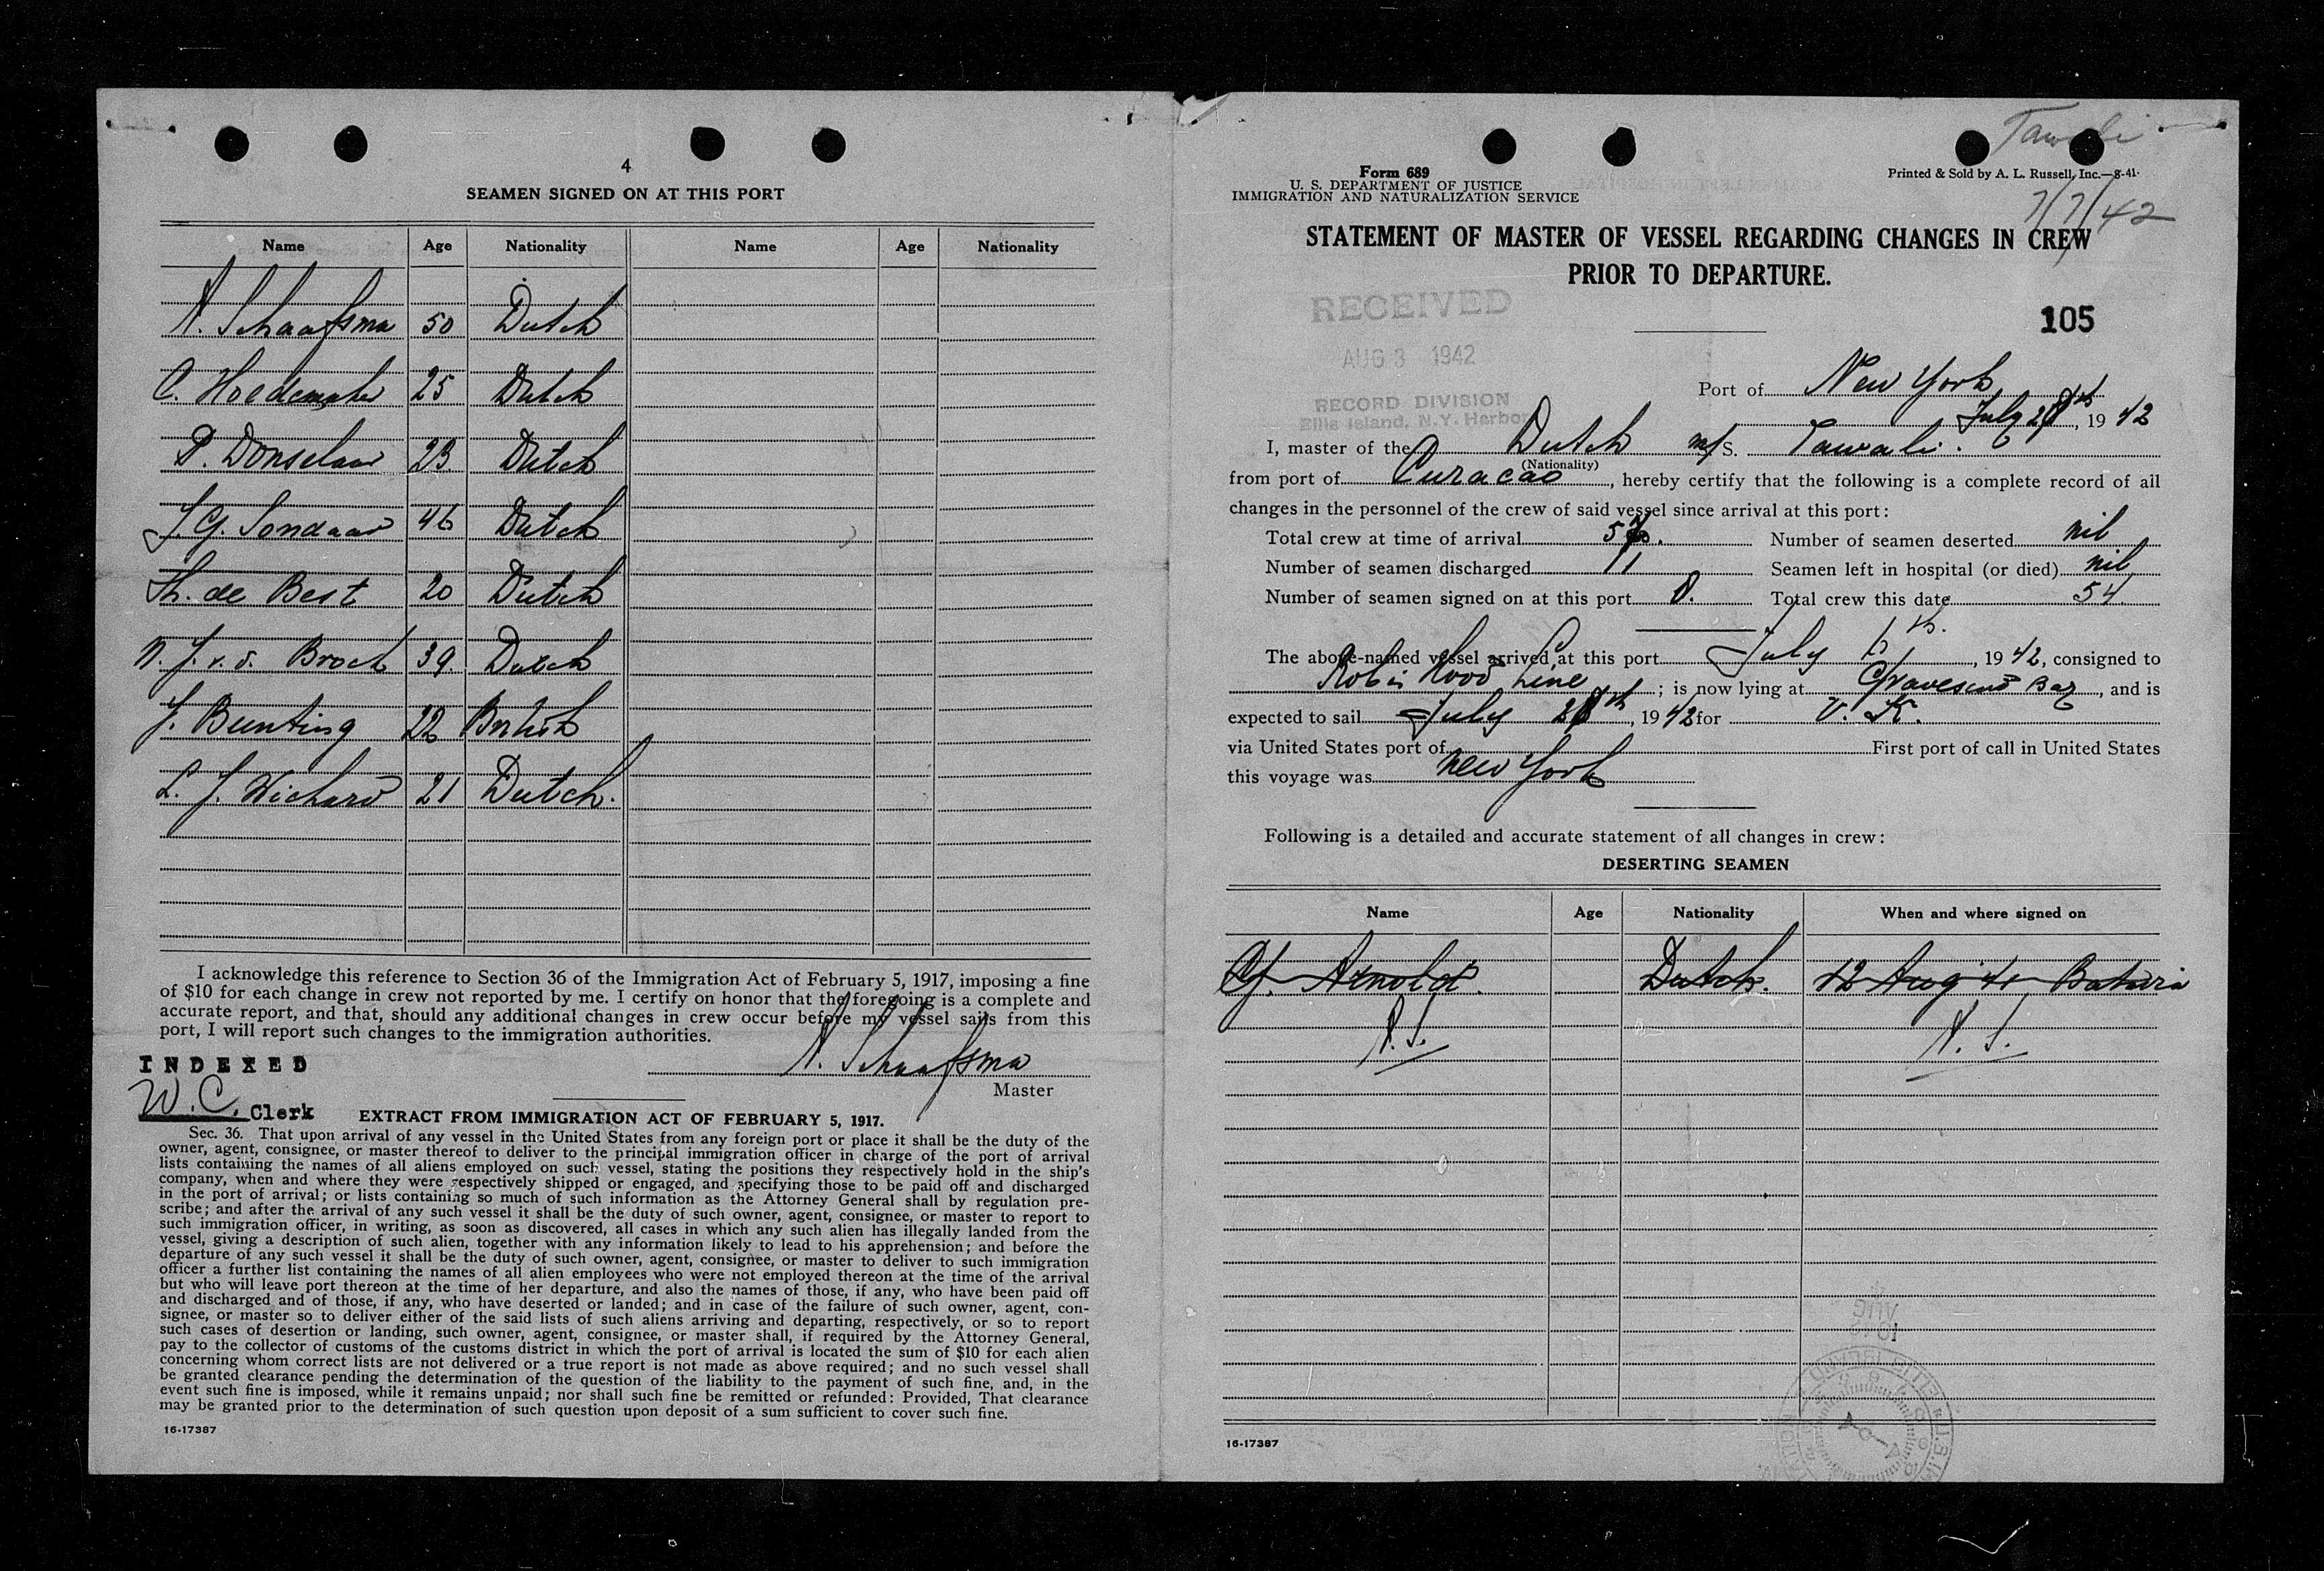 4
SEAMEN SIGNED ON AT THIS PORT
Name Age Nationality Name Age Nationality
N. Schaafsma 50 Dutch
C. Hoedemaker 25 Dutch
P. Donselaar 23 Dutch
J. G. Sondaar 46 Dutch
Th. de Best 20 Dutch
N. J. v. d. Broek 39. Dutch
J. Bunting 22 British
L. J. Wichard 21 Dutch.
I acknowledge this reference to Section 36 of the Immigration Act of February 5, 1917, imposing a fine
of $10 for each change in crew not reported by me. I certify on honor that the foregoing is a complete and
accurate report, and that, should any additional changes in crew occur before my vessel sails from this
port, I will report such changes to the immigration authorities.
N. Schaafsma
Master
INDEXED
W.C. Clerk
EXTRACT FROM IMMIGRATION ACT OF FEBRUARY 5, 1917.
Sec. 36. That upon arrival of any vessel in the United States from any foreign port or place it shall be the duty of the
owner, agent, consignee, or master thereof to deliver to the principal immigration officer in charge of the port of arrival
lists containing the names of all aliens employed on such vessel, stating the positions they respectively hold in the ship's
company, when and where they were respectively shipped or engaged, and specifying those to be paid off and discharged
in the port of arrival; or lists containing so much of such information as the Attorney General shall by regulation pre-
scribe; and after the arrival of any such vessel it shall be the duty of such owner, agent, consignee, or master to report to
such immigration officer, in writing, as soon as discovered, all cases in which any such alien has illegally landed from the
vessel, giving a description of such alien, together with any information likely to lead to his apprehension; and before the
departure of any such vessel it shall be the duty of such owner, agent, consignee, or master to deliver to such immigration
officer a further list containing the names of all alien employees who were not employed thereon at the time of the arrival
but who will leave port thereon at the time of her departure, and also the names of those, if any, who have been paid off
and discharged and of those, if any, who have deserted or landed; and in case of the failure of such owner, agent, con-
signee, or master so to deliver either of the said lists of such aliens arriving and departing, respectively, or so to report
such cases of desertion or landing, such owner, agent, consignee, or master shall, if required by the Attorney General,
pay to the collector of customs of the customs district in which the port of arrival is located the sum of $10 for each alien
concerning whom correct lists are not delivered or a true report is not made as above required; and no such vessel shall
be granted clearance pending the determination of the question of the liability to the payment of such fine, and, in the
event such fine is imposed, while it remains unpaid; nor shall such fine be remitted or refunded: Provided, That clearance
may be granted prior to the determination of such question upon deposit of a sum sufficient to cover such fine.
16-17387
Tawali
Form 689
U. S. DEPARTMENT OF JUSTICE
IMMIGRATION AND NATURALIZATION SERVICE
Printed & Sold by A. L. Russell, Inc.—8-41.
7/7/42
STATEMENT OF MASTER OF VESSEL REGARDING CHANGES IN CREW
PRIOR TO DEPARTURE.
RECEIVED
AUG 3 1942
RECORD DIVISION
Ellis Island, N.Y. Harbor
105
Port of New York
July 28th, 1942
I, master of the Dutch m/S. Tawali.
(Nationality)
from port of Curacao, hereby certify that the following is a complete record of all
changes in the personnel of the crew of said vessel since arrival at this port:
Total crew at time of arrival 57. Number of seamen deserted nil
Number of seamen discharged 11 Seamen left in hospital (or died) nil
Number of seamen signed on at this port 8. Total crew this date 54
The above-named vessel arrived at this port July 6th., 1942, consigned to
Robin Hood Line; is now lying at Gravesend Bay, and is
expected to sail July 28th, 1942 for U. K.
via United States port of First port of call in United States
this voyage was New York
Following is a detailed and accurate statement of all changes in crew:
DESERTING SEAMEN
Name Age Nationality When and where signed on
G. Arnold. Dutch. 12 Aug 41 Batavia
N.S. N.S.
16-17387